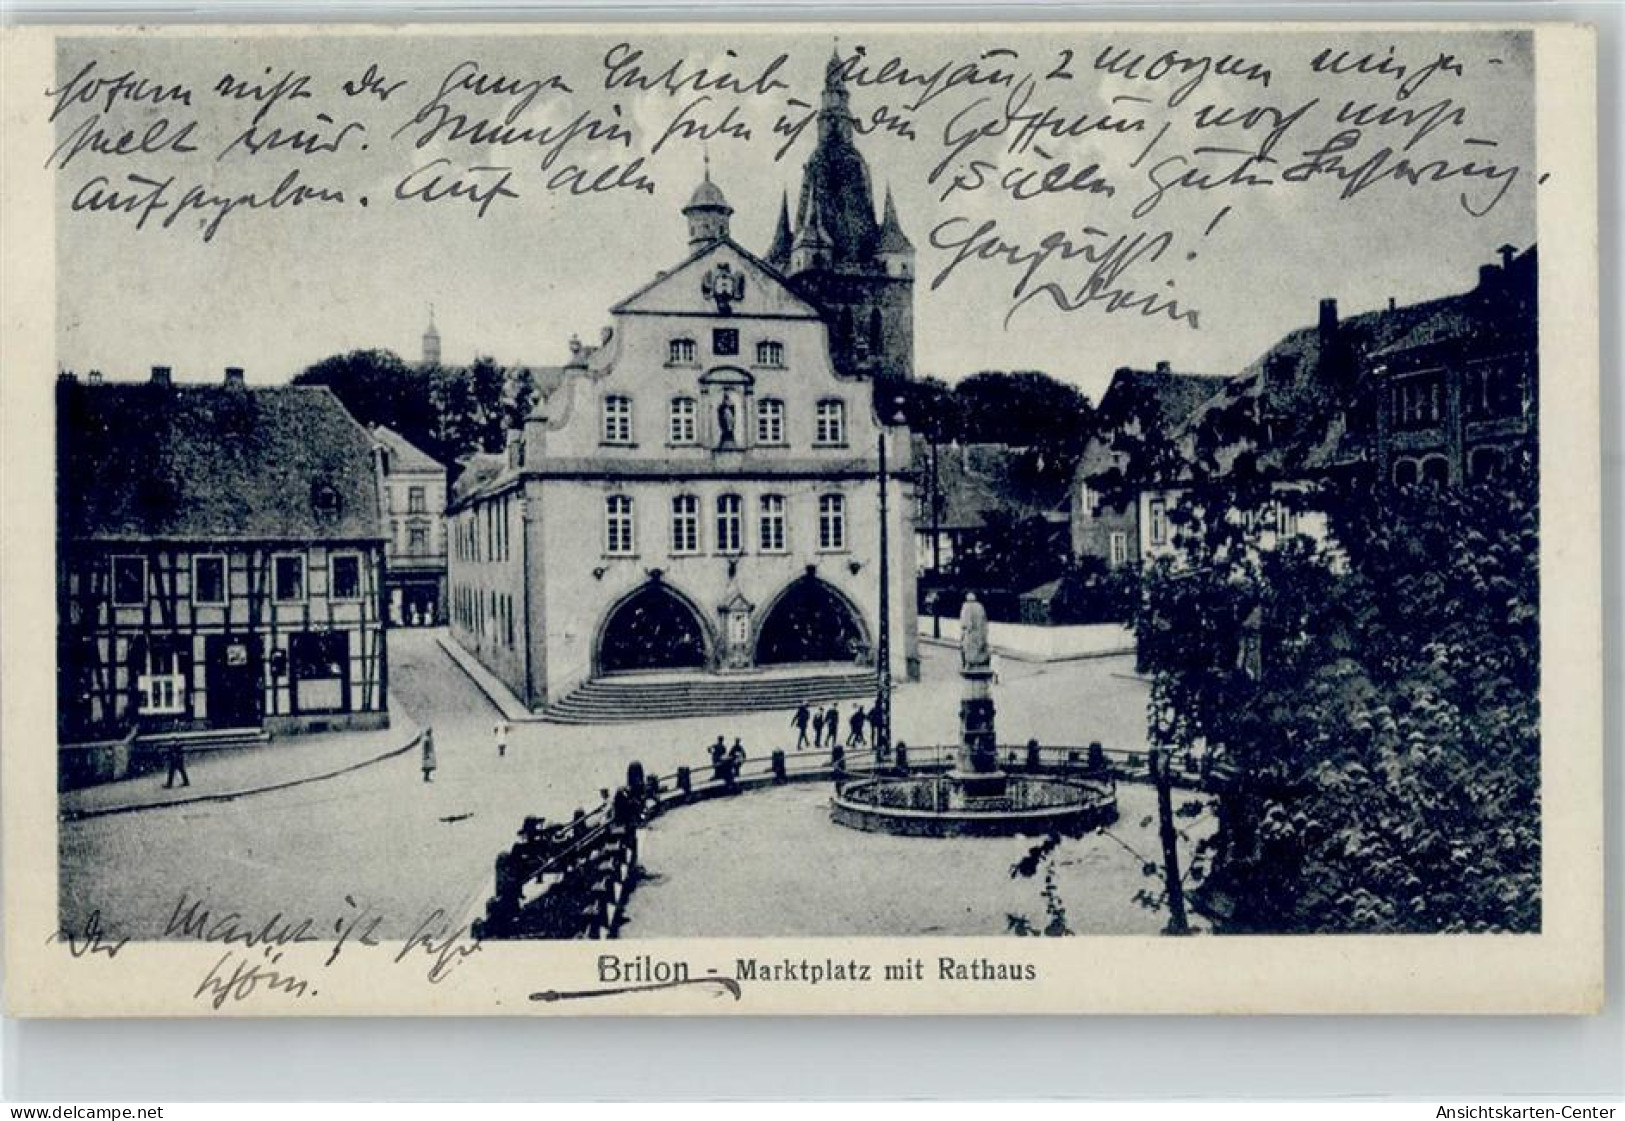 sofern nicht der ganze Betrieb 2 Morgen einge-
stellt wird. Immerhin habe ich die Hoffnung, noch nicht
aufgegeben. Auf alle Fälle gute Besserung,
Herzgruß!
Dein
Der Markt ist sehr
schön.
Brilon - Marktplatz mit Rathaus
my-store.delcampe.net
Ansichtskarten-Center